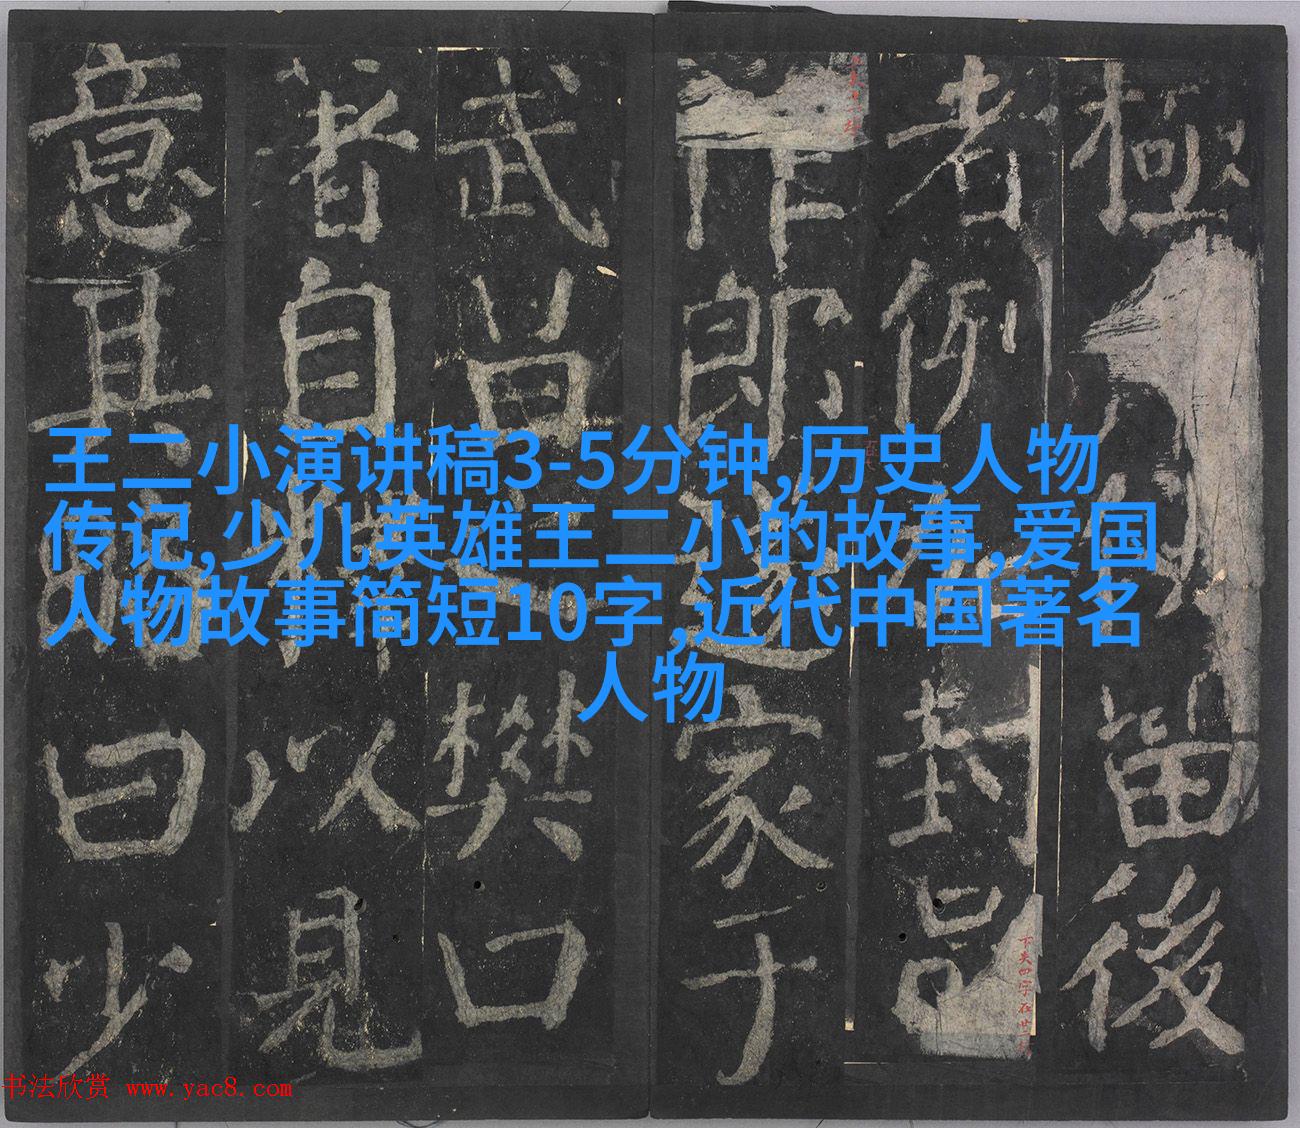 王二小演讲稿3-5分钟,历史人物
传记,少儿英雄王二小的故事,爱国
人物故事简短10字,近代中国著名
人物
極 留後
者例 封
作郎遂家于
武昌之樊口
著自釋以見
意其略曰少
书法欣赏 www.yac8.com